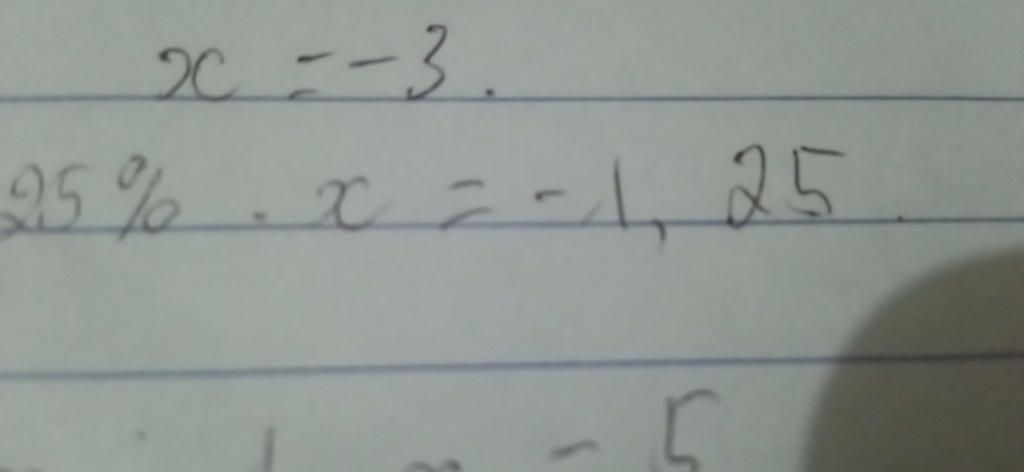 x = -3.
25% . x = -1,25.
- 5